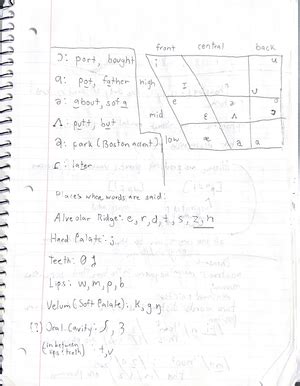 ɔ: port, bought
ɑ: pot, father
ə: about, sofa
ʌ: putt, but
a: park (Boston accent)
ɾ: later
front central back
high
mid
low
i u
ɪ ʊ
e ə ɔ
ɛ ʌ
æ a ɑ
Places where words are said:
Alveolar Ridge: r, d, t, s, z, n
Hard Palate: j
Teeth: θ
Lips: w, m, p, b
Velum (Soft Palate): k, g ŋ
(?) Oral Cavity: ʃ, ʒ
(in between lips & teeth) f, v